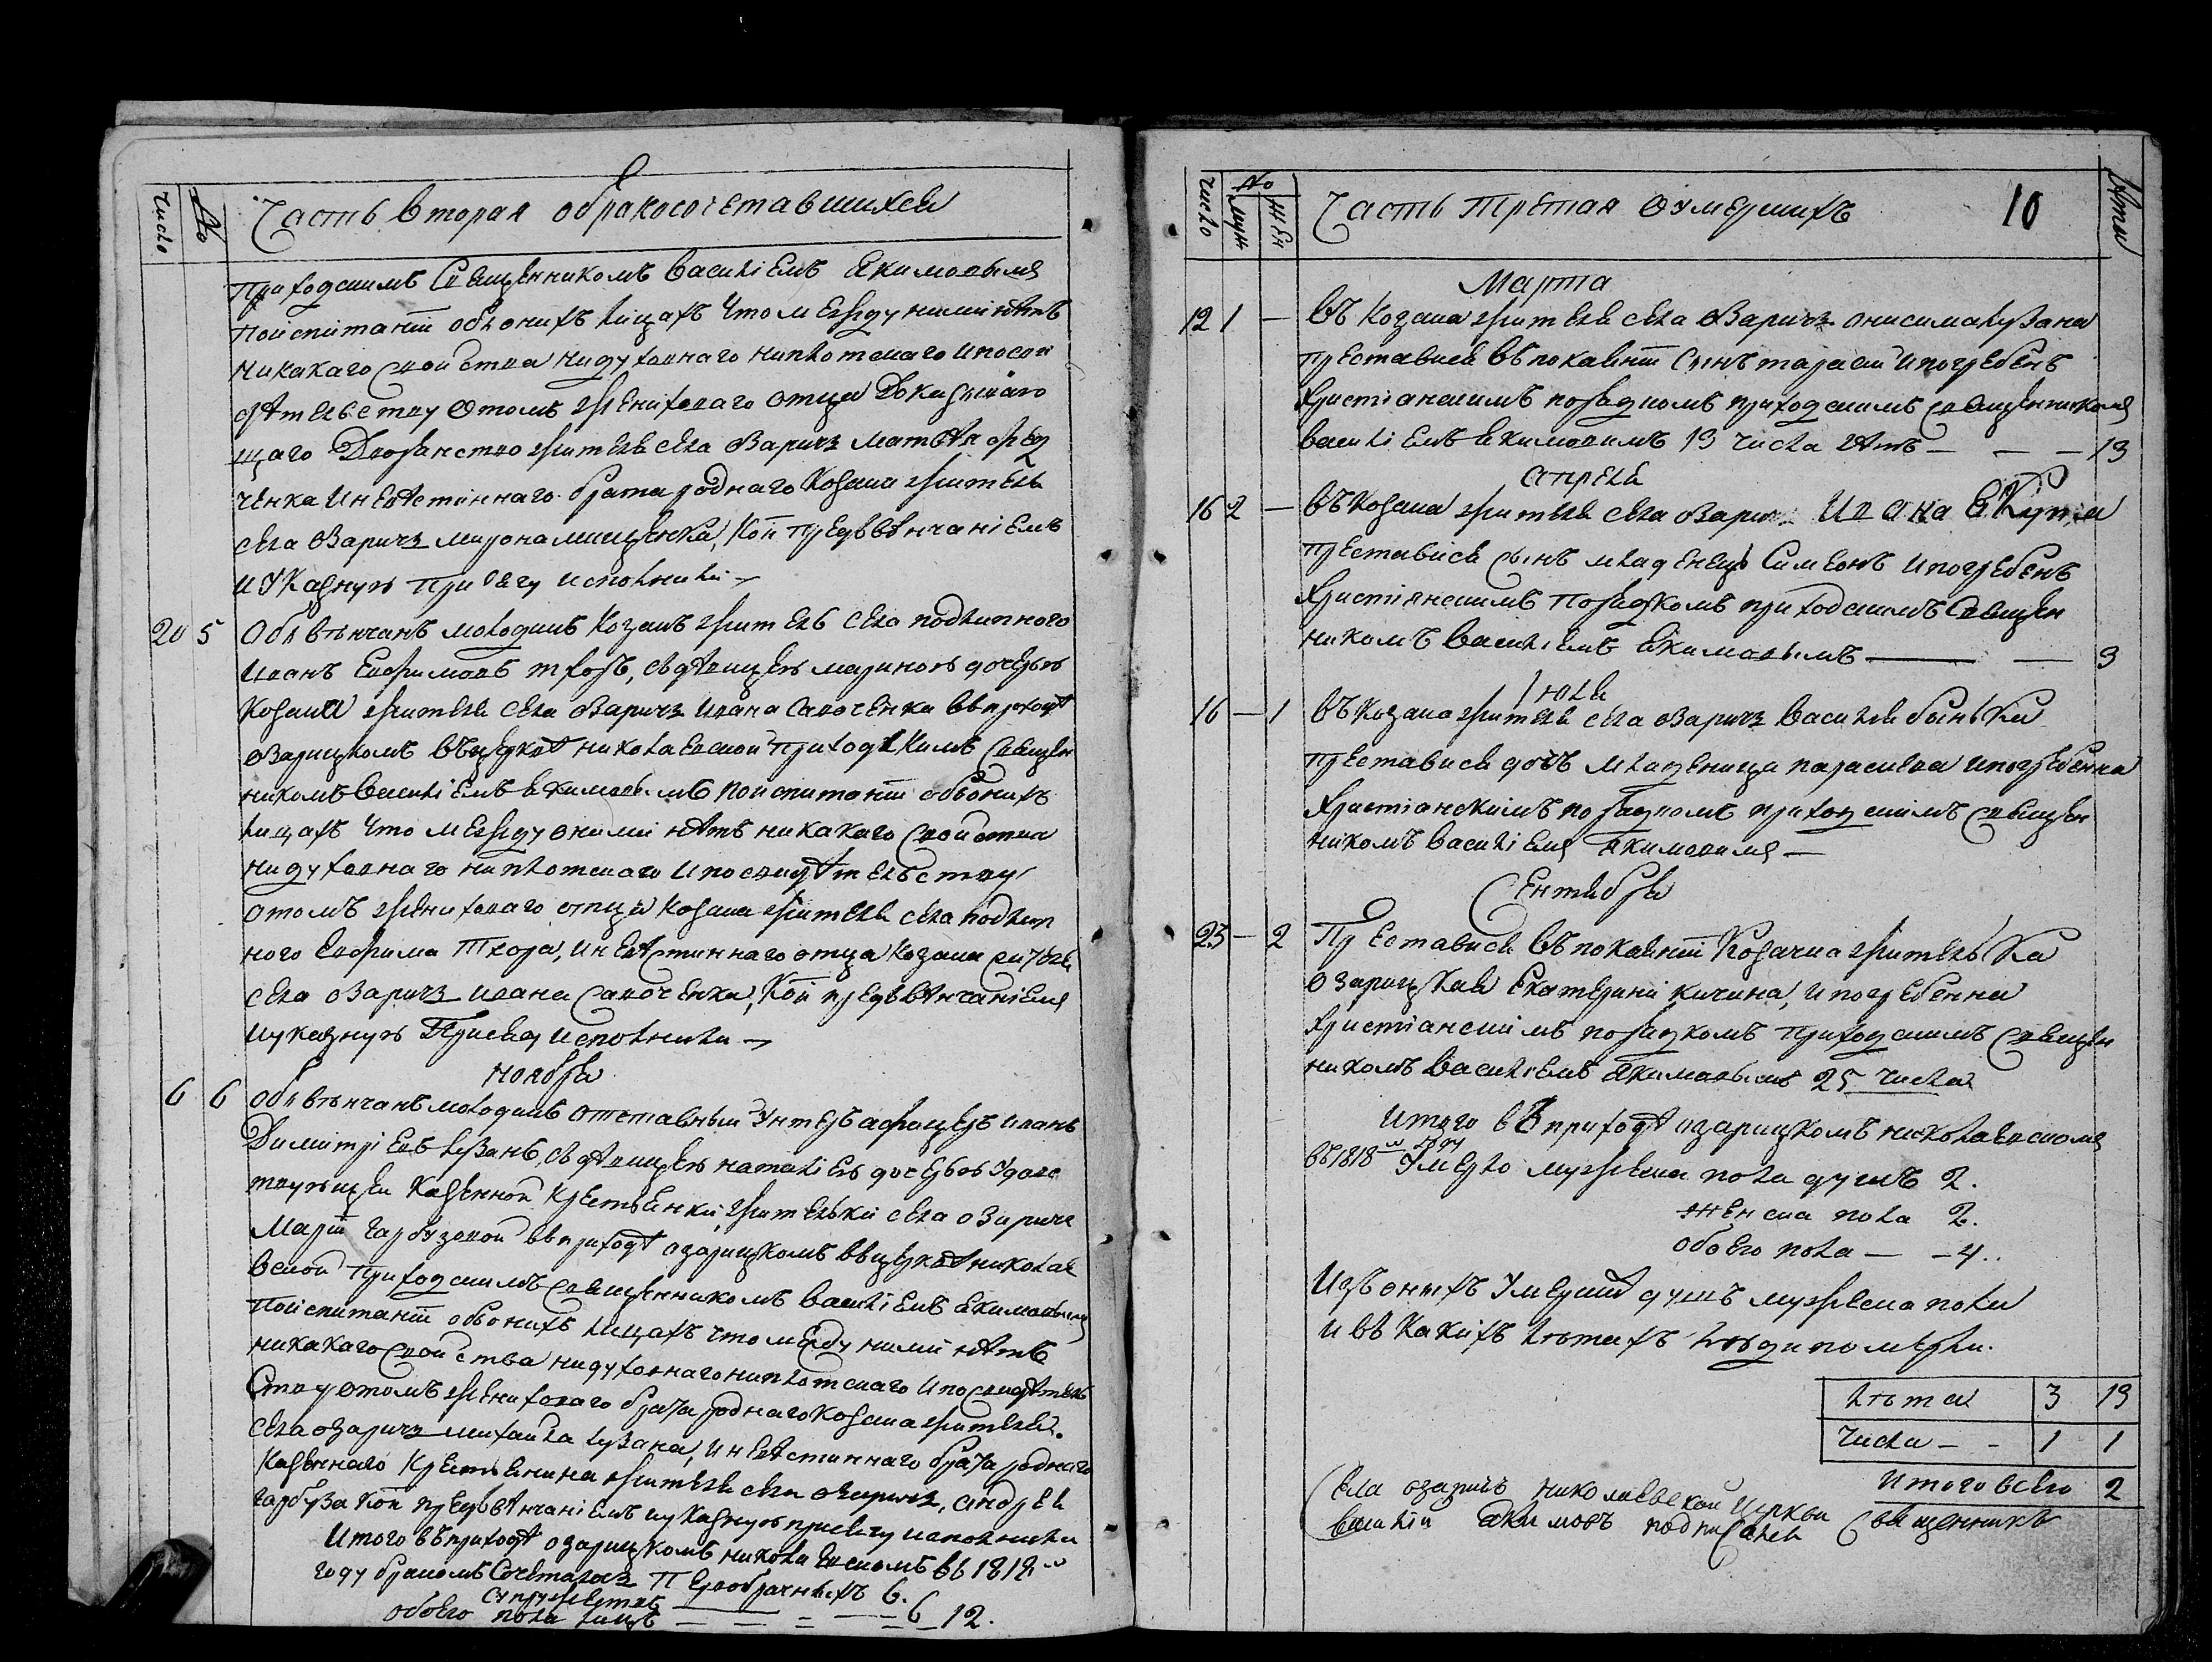 Число
№
Часть вторая о бракосочетавшихся
приходскимъ Священникомъ Василіемъ Якимовымъ
поиспитаніи обь онихъ лицахъ что между ними нѣтъ
никакаго свойства ни духовнаго ни плотскаго и по сви
дѣтельству о томъ женихового отца Доказиваю
щаго Дворянство жителя села Озаричъ Матвѣя
ченка и невѣстиннаго брата роднаго козака жителя
села Озаричъ Мирона Мищенка, кои предъ вѣнчаніемъ
и указную присягу исполнили
20 5 Обвѣнчанъ молодикъ козакъ житель села подлипного
Иванъ Евфимовъ тхоръ, съ дѣвицею мариною дочерью
козака жителя села Озаричъ ивана Савоченка въ приходѣ
Озарицкомъ въ церквѣ николаевской приходскимъ священ
никомъ Василіемъ Якимовымъ поиспитаніи обь онихъ
лицахъ что между оними нѣтъ никакаго свойства
ни духовнаго ни плотскаго и по свидѣтельству
о томъ женихового отца козака жителя села подлип
ного Евфима Тхора, и невѣстиннаго отца козака жителя
села Озаричъ ивана Савоченка, кои предъ вѣнчаніемъ
и указную Присягу исполнили
ноября
6 6 Обвѣнчанъ молодикъ отставный Унтеръ афицеръ иванъ
Димитріевъ Лузанъ, съ дѣвицею наталіею дочерью Удовс
твующей казенной крестьянки, жительки села Озаричъ
Маріи гарбузовой въ приходѣ озарицкомъ въ церквѣ никола
вской приходскимъ священникомъ Василіемъ Якимовымъ
поиспитаніи обь онихъ лицахъ что между ними нѣтъ
никакаго свойства ни духовнаго ни плотскаго и по свидѣтель
ству о томъ женихового брата роднаго козака жителя
села озаричъ михайла лузана, и невѣстиннаго брата роднаго
казеннаго крестьянина жителя села озаричъ, андрея
гарбуза кои предъ вѣнчаніемъ и указную присягу исполнили
Итого въ приходѣ озарицкомъ николаевскомъ въ 1818м
году бракомъ Сочеталось Первобрачныхъ 6.
супружествъ 6
обоего пола лицъ 12.
Число
№
муж
жен
Часть третая о умершихъ
10
Лѣта
Марта
12 1 — въ козака жителя села Озаричъ онисима лузана
преставися въ покаяніи сынъ тарасий и погребенъ
Христіанскимъ порядкомъ приходскимъ священникомъ
василіемъ Якимовимъ 13 числа лѣтъ — 13
апреля
16 2 — въ козака жителя села озаричъ Ивана
преставися сынъ младенецъ Симеонъ и погребенъ
Христіянскимъ порядкомъ приходскимъ Священ
никомъ Василіемъ Якимовымъ — 3
Іюля
16 — 1 въ козака жителя села озаричъ Василя боньки
преставися дочь младеница параскева и погребенна
Христіанскимъ порядкомъ приходскимъ священ
никомъ василіемъ Якимовимъ —
Сентября
23 — 2 Преставися въ покаяніи козачка жителька
озарицкая Екатерина кичина, и погребенна
Христіанскимъ порядкомъ приходскимъ священ
никомъ Василіемъ Якимовымъ 25 числа
Итого въ приходѣ озарицкомъ николаевскомъ
въ 1818м году Умерло мужеска пола душъ 2.
женска пола 2.
обоего пола — 4..
Изъ онихъ Умерших душъ мужеска пола
и въ какихъ лѣтахъ люди померли.
лѣта 3 13
числа — 1 1
Итого всего 2
Села озаричъ николаевской церкви Священникъ
Василій Якимовъ подписался